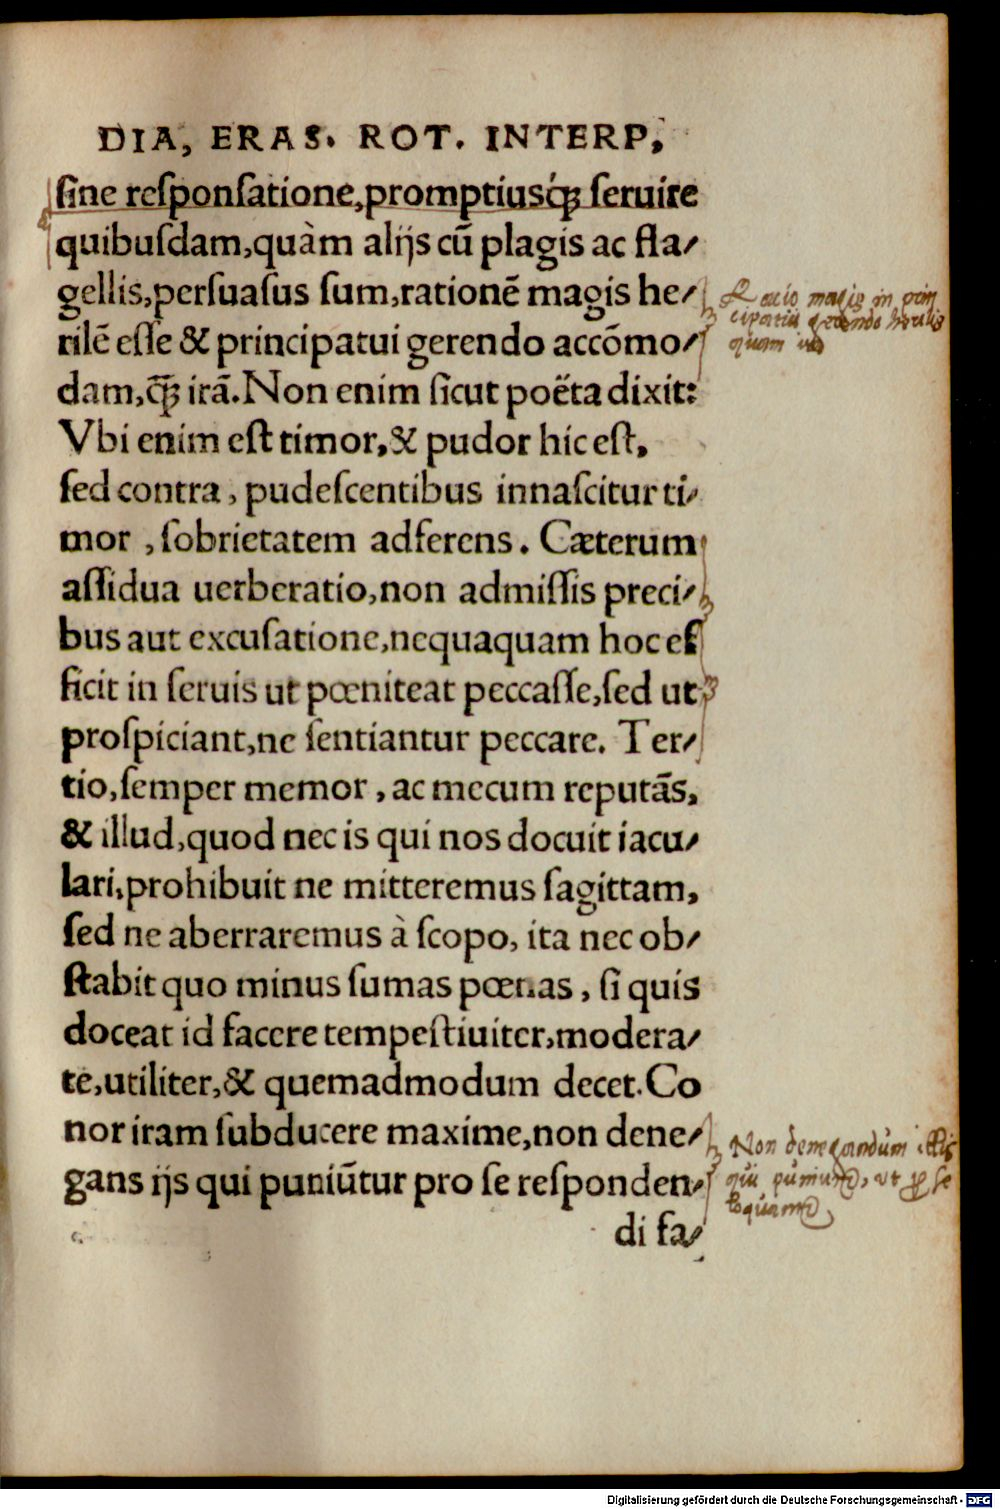 DIA, ERAS. ROT. INTERP,
ſine reſponſatione,promptiusq́ꝫ ſeruire
quibuſdam,quàm alijs cũ plagis ac fla-
gellis,perſuaſus ſum,rationẽ magis he-
rilẽ eſſe & principatui gerendo accõmo-
dam,q̃ꝫ irã.Non enim ſicut poëta dixit:
Vbi enim eſt timor,& pudor hic eſt,
ſed contra, pudeſcentibus innaſcitur ti-
mor , ſobrietatem adferens. Cæterum
aſſidua uerberatio,non admiſſis preci-
bus aut excuſatione,nequaquam hoc ef
ficit in ſeruis ut pœniteat peccaſſe,ſed ut
proſpiciant,ne ſentiantur peccare. Ter-
tio,ſemper memor , ac mecum reputãs,
& illud,quod nec is qui nos docuit iacu-
lari,prohibuit ne mitteremus ſagittam,
ſed ne aberraremus à ſcopo, ita nec ob-
ſtabit quo minus ſumas pœnas , ſi quis
doceat id facere tempeſtiuiter,modera-
te,utiliter,& quemadmodum decet.Co
nor iram ſubducere maxime,non dene-
gans ijs qui puniũtur pro ſe reſponden-
di fa-
Ratio magis in prin
cipatu gerendo herilis
quam ira
Non denegandum illis
qui puniunt, ut p ſe
loquant
Digitalisierung gefördert durch die Deutsche Forschungsgemeinschaft - DFG